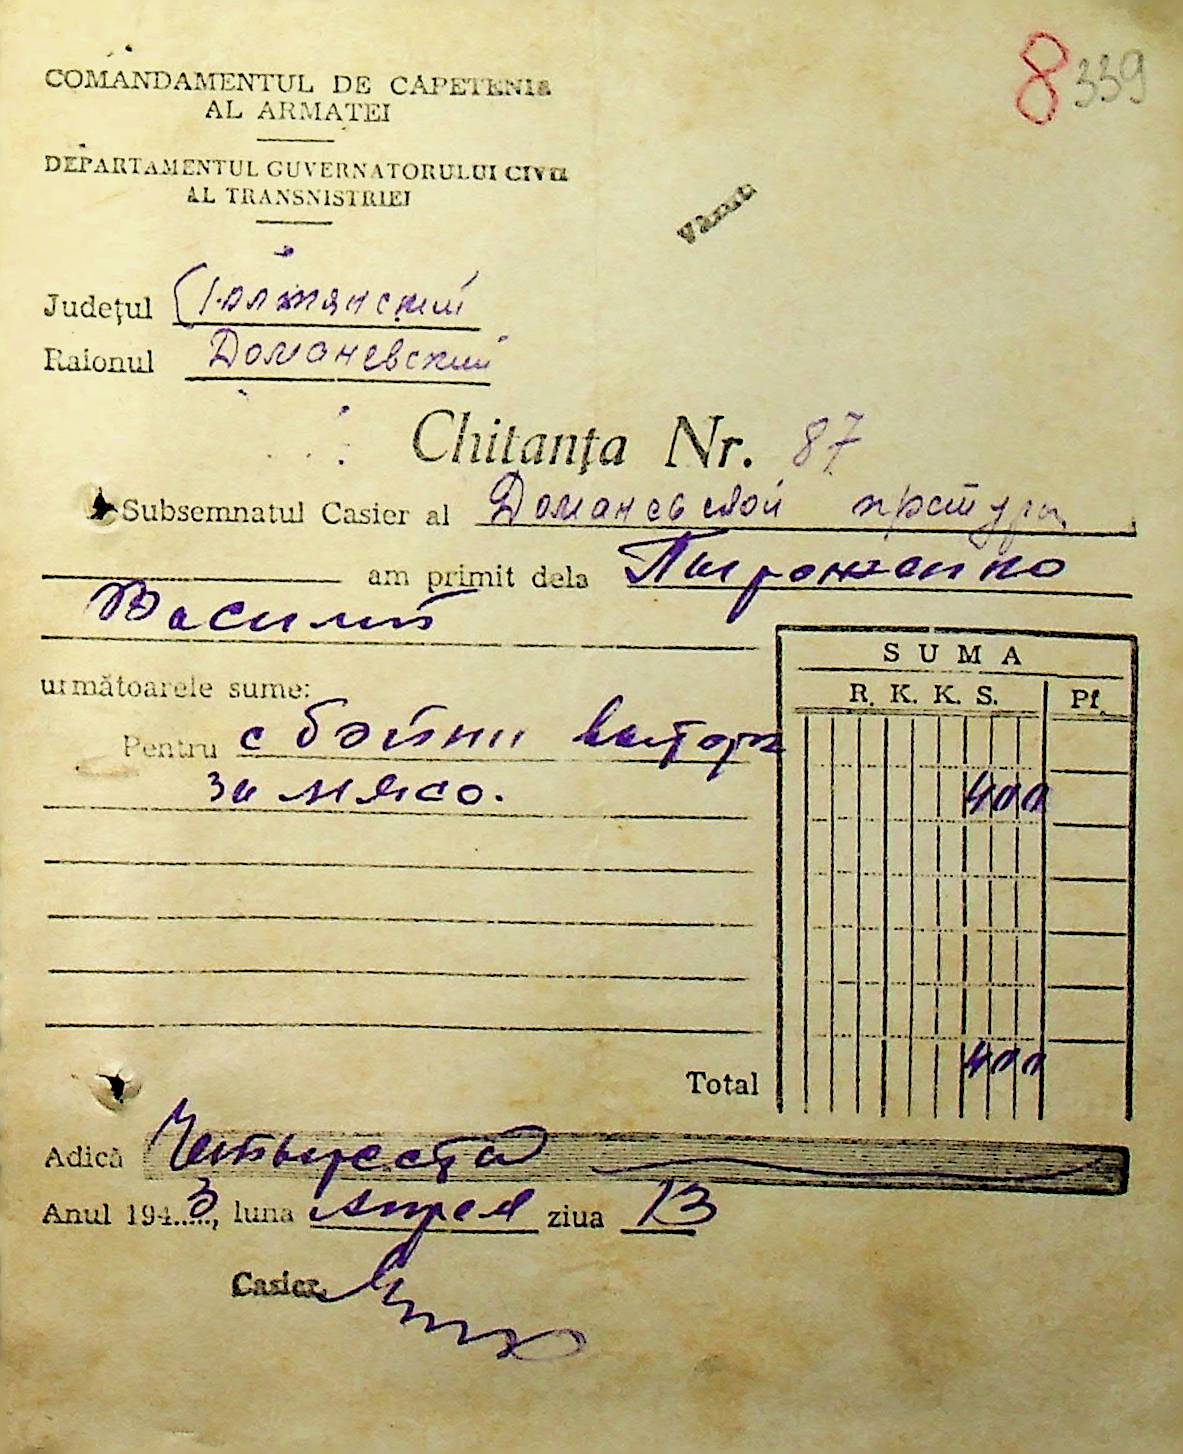 8 339
COMANDAMENTUL DE CAPETENIE
AL ARMATEI
DEPARTAMENTUL GUVERNATORULUI CIVIL
AL TRANSNISTRIEI
Vărsat
Județul Голтянский
Raionul Доманевский
Chitanța Nr. 87
Subsemnatul Casier al Доманевской претуры
am primit dela Пироженко
Василий
SUMA
următoarele sume:
R. K. K. S. Pf.
Pentru с бойни
за мясо.
400
Total 400
Adică Четыреста
Anul 1943, luna Апреля ziua 13
Casier,